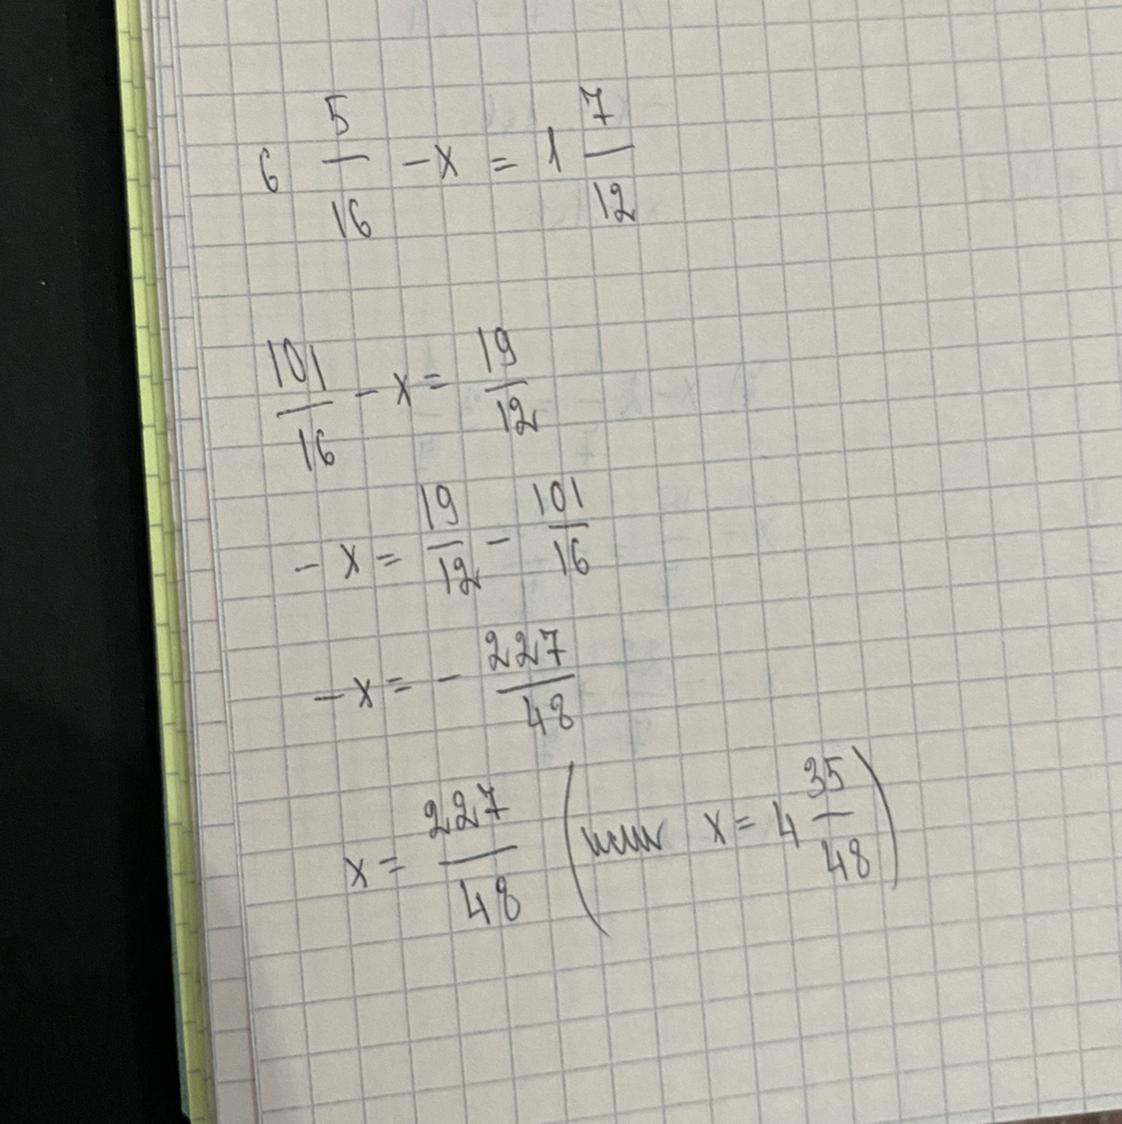 6 5/16 - x = 1 7/12
101/16 - x = 19/12
- x = 19/12 - 101/16
- x = - 227/48
x = 227/48 (или x = 4 35/48)